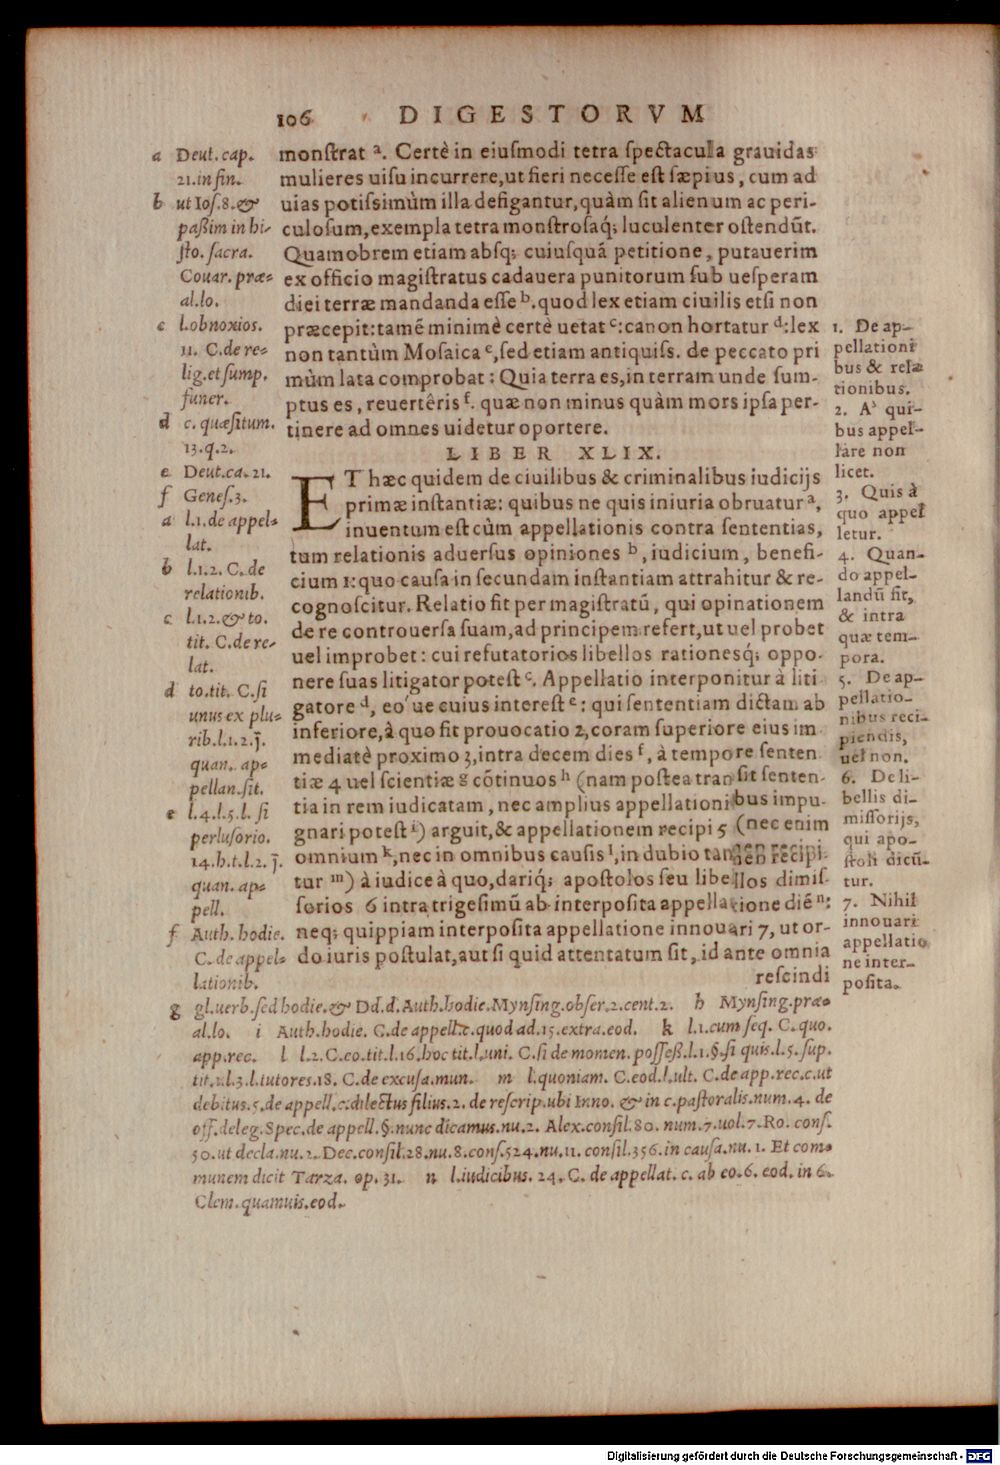 106 DIGESTORVM
a Deut. cap.
21. in fin.
b ut Ios. 8. &
paßim in hi-
sto. sacra.
Couar. præ-
al. lo.
c l. obnoxios.
11. C. de re-
lig. et sump.
funer.
d c. quæsitum.
13. q. 2.
e Deut. ca. 21.
f Genes. 3.
a l. 1. de appel-
lat.
b l. 1. 2. C. de
relationib.
c l. 1. 2. & to.
tit. C. de re-
lat.
d to. tit. C. si
unus ex plu-
rib. l. 1. 2. j̃.
quan. ap-
pellan. sit.
e l. 4. l. 5. l. si
perlusorio.
14. h. t. l. 2. j̃.
quan. ap-
pell.
f Auth. hodie.
C. de appel-
lationib.
monſtrat ª. Certè in eiuſmodi tetra ſpectacula grauidas
mulieres uiſu incurrere, ut fieri neceſſe eſt ſæpius, cum ad
uias potiſsimùm illa defigantur, quàm ſit alienum ac peri-
culoſum, exempla tetra monſtroſaq́; luculenter oſtendūt.
Quamobrem etiam absq; cuiuſquā petitione, putauerim
ex officio magiſtratus cadauera punitorum ſub ueſperam
diei terræ mandanda eſſe ᵇ. quod lex etiam ciuilis etſi non
præcepit: tamē minimè certè uetat ᶜ: canon hortatur ᵈ: lex
non tantùm Moſaica ᵉ, ſed etiam antiquiſs. de peccato pri
mùm lata comprobat: Quia terra es, in terram unde ſum-
ptus es, reuertêris ᶠ. quæ non minus quàm mors ipſa per-
tinere ad omnes uidetur oportere.
LIBER XLIX.
ET hæc quidem de ciuilibus & criminalibus iudicijs
primæ inſtantiæ: quibus ne quis iniuria obruatur ª,
inuentum eſt cùm appellationis contra ſententias,
tum relationis aduerſus opiniones ᵇ, iudicium, benefi-
cium 1: quo cauſa in ſecundam inſtantiam attrahitur & re-
cognoſcitur. Relatio fit per magiſtratū, qui opinationem
de re controuerſa ſuam, ad principem refert, ut uel probet
uel improbet: cui refutatorios libellos rationesq́; oppo-
nere ſuas litigator poteſt ᶜ. Appellatio interponitur à liti
gatore ᵈ, eo ue cuius intereſt ᵉ: qui ſententiam dictam ab
inferiore, à quo fit prouocatio 2, coram ſuperiore eius im
mediatè proximo 3, intra decem dies ᶠ, à tempore ſenten
tiæ 4 uel ſcientiæ ᵍ cōtinuos ʰ (nam poſtea tranſit ſenten-
tia in rem iudicatam, nec amplius appellationibus impu-
gnari poteſt ⁱ) arguit, & appellationem recipi 5 (nec enim
omnium ᵏ, nec in omnibus cauſis ˡ, in dubio tamen recipi-
tur ᵐ) à iudice à quo, dariq́; apoſtolos ſeu libellos dimiſ-
ſorios 6 intra trigeſimū ab interpoſita appellatione diē ⁿ:
neq; quippiam interpoſita appellatione innouari 7, ut or-
do iuris poſtulat, aut ſi quid attentatum ſit, id ante omnia
reſcindi
1. De ap-
pellationi
bus & relæ
tionibus.
2. A' qui-
bus appel-
lare non
licet.
3. Quis à
quo appel
letur.
4. Quan-
do appel-
landū ſit,
& intra
quæ tem-
pora.
5. De ap-
pellatio-
nibus reci-
piendis,
uel non.
6. De li-
bellis di-
miſſorijs,
qui apo-
ſtoli dicū-
tur.
7. Nihil
innouari
appellatio
ne inter-
poſita.
g gl. uerb. ſed hodie. & Dd. d. Auth. hodie. Mynſing. obſer. 2. cent. 2. h Mynſing. præ-
al. lo. i Auth. hodie. C. de appell. c. quod ad. 15. extra. eod. k l. 1. cum ſeq. C. quo.
app. rec. l l. 2. C. eo. tit. l. 16. hoc tit. l. uni. C. ſi de momen. poſſeß. l. 1. §. ſi quis. l. 5. ſup.
tit. 1. l. 3. l. tutores. 18. C. de excuſa. mun. m l. quoniam. C. eod. l. ult. C. de app. rec. c. ut
debitus. 5. de appell. c. dilectus filius. 2. de reſcrip. ubi Inno. & in c. paſtoralis. num. 4. de
off. deleg. Spec. de appell. §. nunc dicamus. nu. 2. Alex. conſil. 80. num. 7. uol. 7. Ro. conſ.
50. ut decla. nu. 2. Dec. conſil. 28. nu. 8. conſ. 524. nu. 11. conſil. 356. in cauſa. nu. 1. Et com-
munem dicit Tarza. op. 31. n l. iudicibus. 24. C. de appellat. c. ab eo. 6. eod. in 6.
Clem. quamuis. eod.
Digitalisierung gefördert durch die Deutsche Forschungsgemeinschaft - DFG